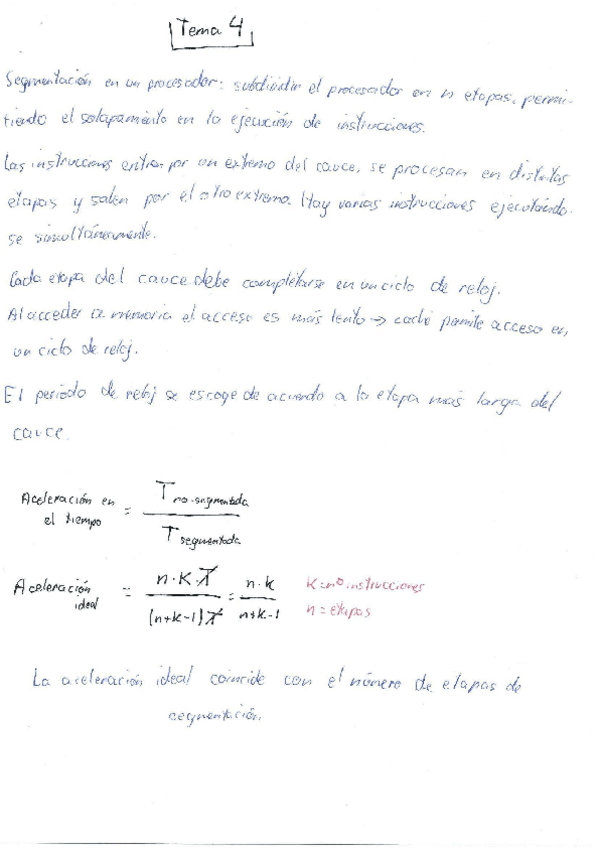 Tema 4
Segmentación en un procesador: subdividir el procesador en n etapas, permi-
tiendo el solapamiento en la ejecución de instrucciones.
Las instrucciones entran por un extremo del cauce, se procesan en distintas
etapas y salen por el otro extremo. Hay varias instrucciones ejecutándo-
se simultáneamente.
Cada etapa del cauce debe completarse en un ciclo de reloj.
Al acceder a memoria el acceso es más lento → caché permite acceso en
un ciclo de reloj.
El periodo de reloj se escoge de acuerdo a la etapa más larga del
cauce.
Aceleración en el tiempo = T no-segmentada / T segmentada
Aceleración ideal = n·K·T / (n+K-1)T = n·k / n+k-1
K=nº instrucciones
n=etapas
La aceleración ideal coincide con el número de etapas de
segmentación.